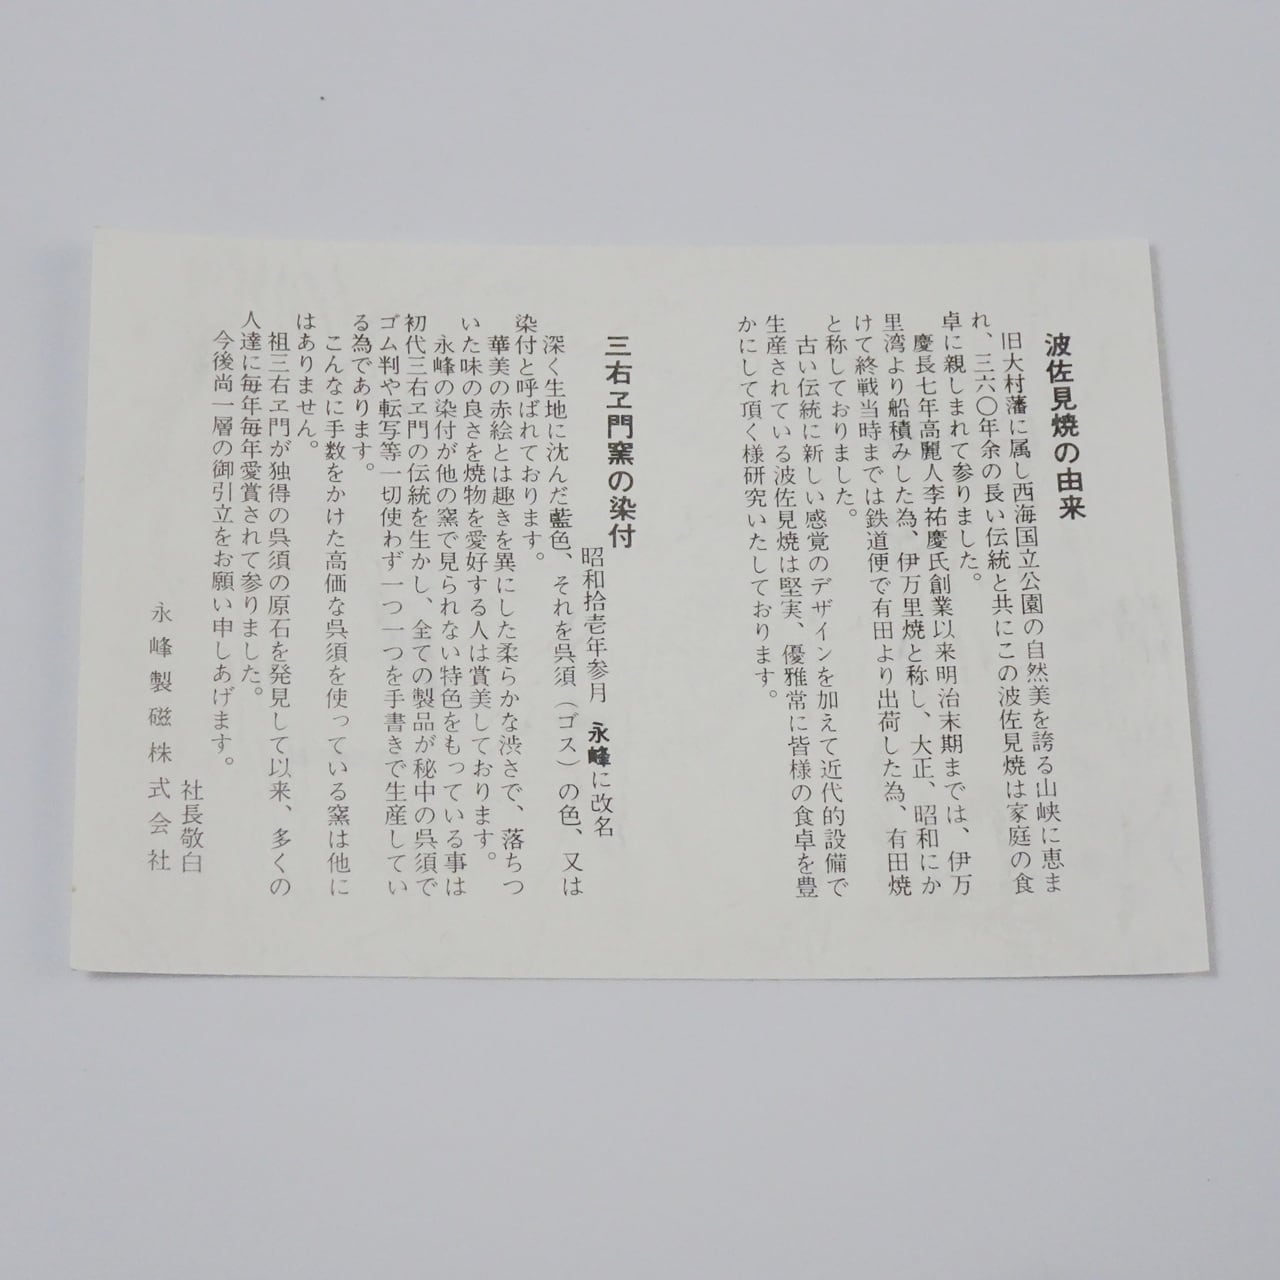 波佐見焼の由来
旧大村藩に属し西海国立公園の自然美を誇る山峡に恵ま
れ、三六〇年余の長い伝統と共にこの波佐見焼は家庭の食
卓に親しまれて参りました。
慶長七年高麗人李祐慶氏創業以来明治末期までは、伊万
里湾より船積みした為、伊万里焼と称し、大正、昭和にか
けて終戦当時までは鉄道便で有田より出荷した為、有田焼
と称しておりました。
古い伝統に新しい感覚のデザインを加えて近代的設備で
生産されている波佐見焼は堅実、優雅常に皆様の食卓を豊
かにして頂く様研究いたしております。
三右ヱ門窯の染付
昭和拾壱年参月 永峰に改名
深く生地に沈んだ藍色、それを呉須（ゴス）の色、又は
染付と呼ばれております。
華美の赤絵とは趣きを異にした柔らかな渋さで、落ちつ
いた味の良さを焼物を愛好する人は賞美しております。
永峰の染付が他の窯で見られない特色をもっている事は
初代三右ヱ門の伝統を生かし、全ての製品が秘中の呉須で
ゴム判や転写等一切使わず一つ一つを手書きで生産してい
る為であります。
こんなに手数をかけた高価な呉須を使っている窯は他に
はありません。
祖三右ヱ門が独得の呉須の原石を発見して以来、多くの
人達に毎年毎年愛賞されて参りました。
今後尚一層の御引立をお願い申しあげます。
社長敬白
永峰製磁株式会社